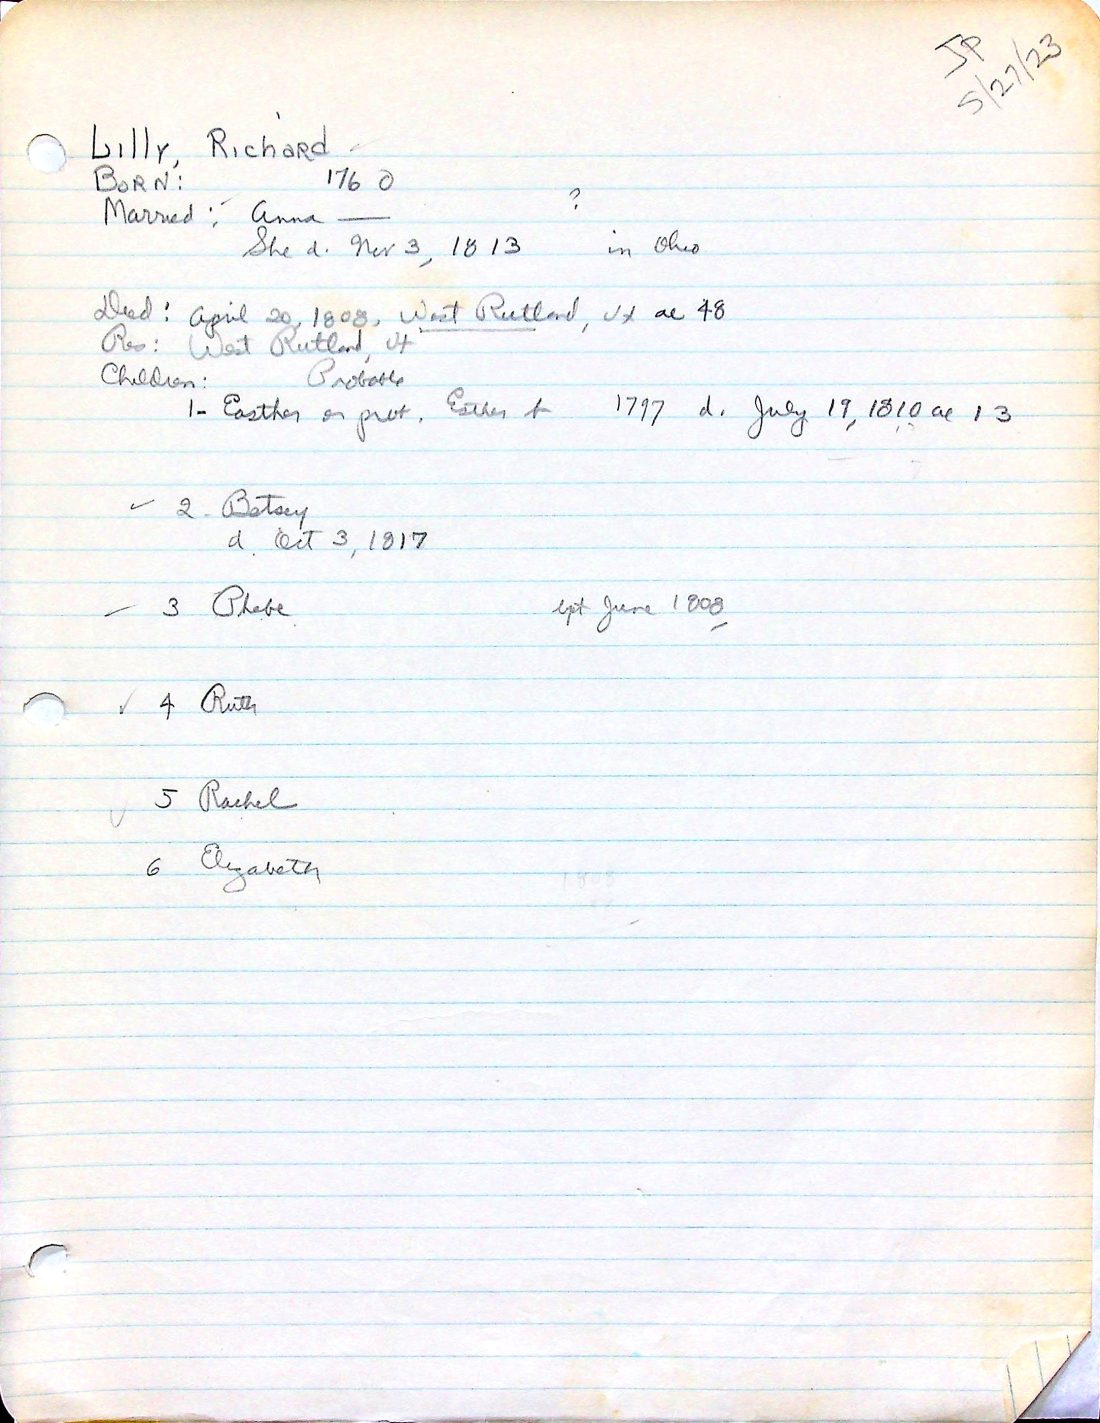 JP
5/27/23
Lilly, Richard
Born: 1760
Married: Anna —— ?
She d. Nov 3, 1813 in Ohio
Died: April 20, 1808, West Rutland, Vt ae 48
Res: West Rutland, Vt
Children: Probable
1- Easther or prob. Esther b 1797 d. July 19, 1810 ae 13
2- Betsey
d. Oct 3, 1817
3 Phebe bpt June 1808
4 Ruth
5 Rachel
6 Elizabeth